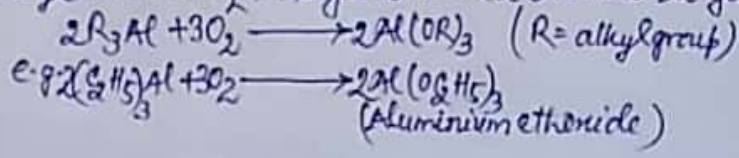 2R₃Al + 3O₂ ⟶ 2Al(OR)₃ (R = alkyl group)
e.g. 2(C₂H₅)₃Al + 3O₂ ⟶ 2Al(OC₂H₅)₃
(Aluminium ethoxide)